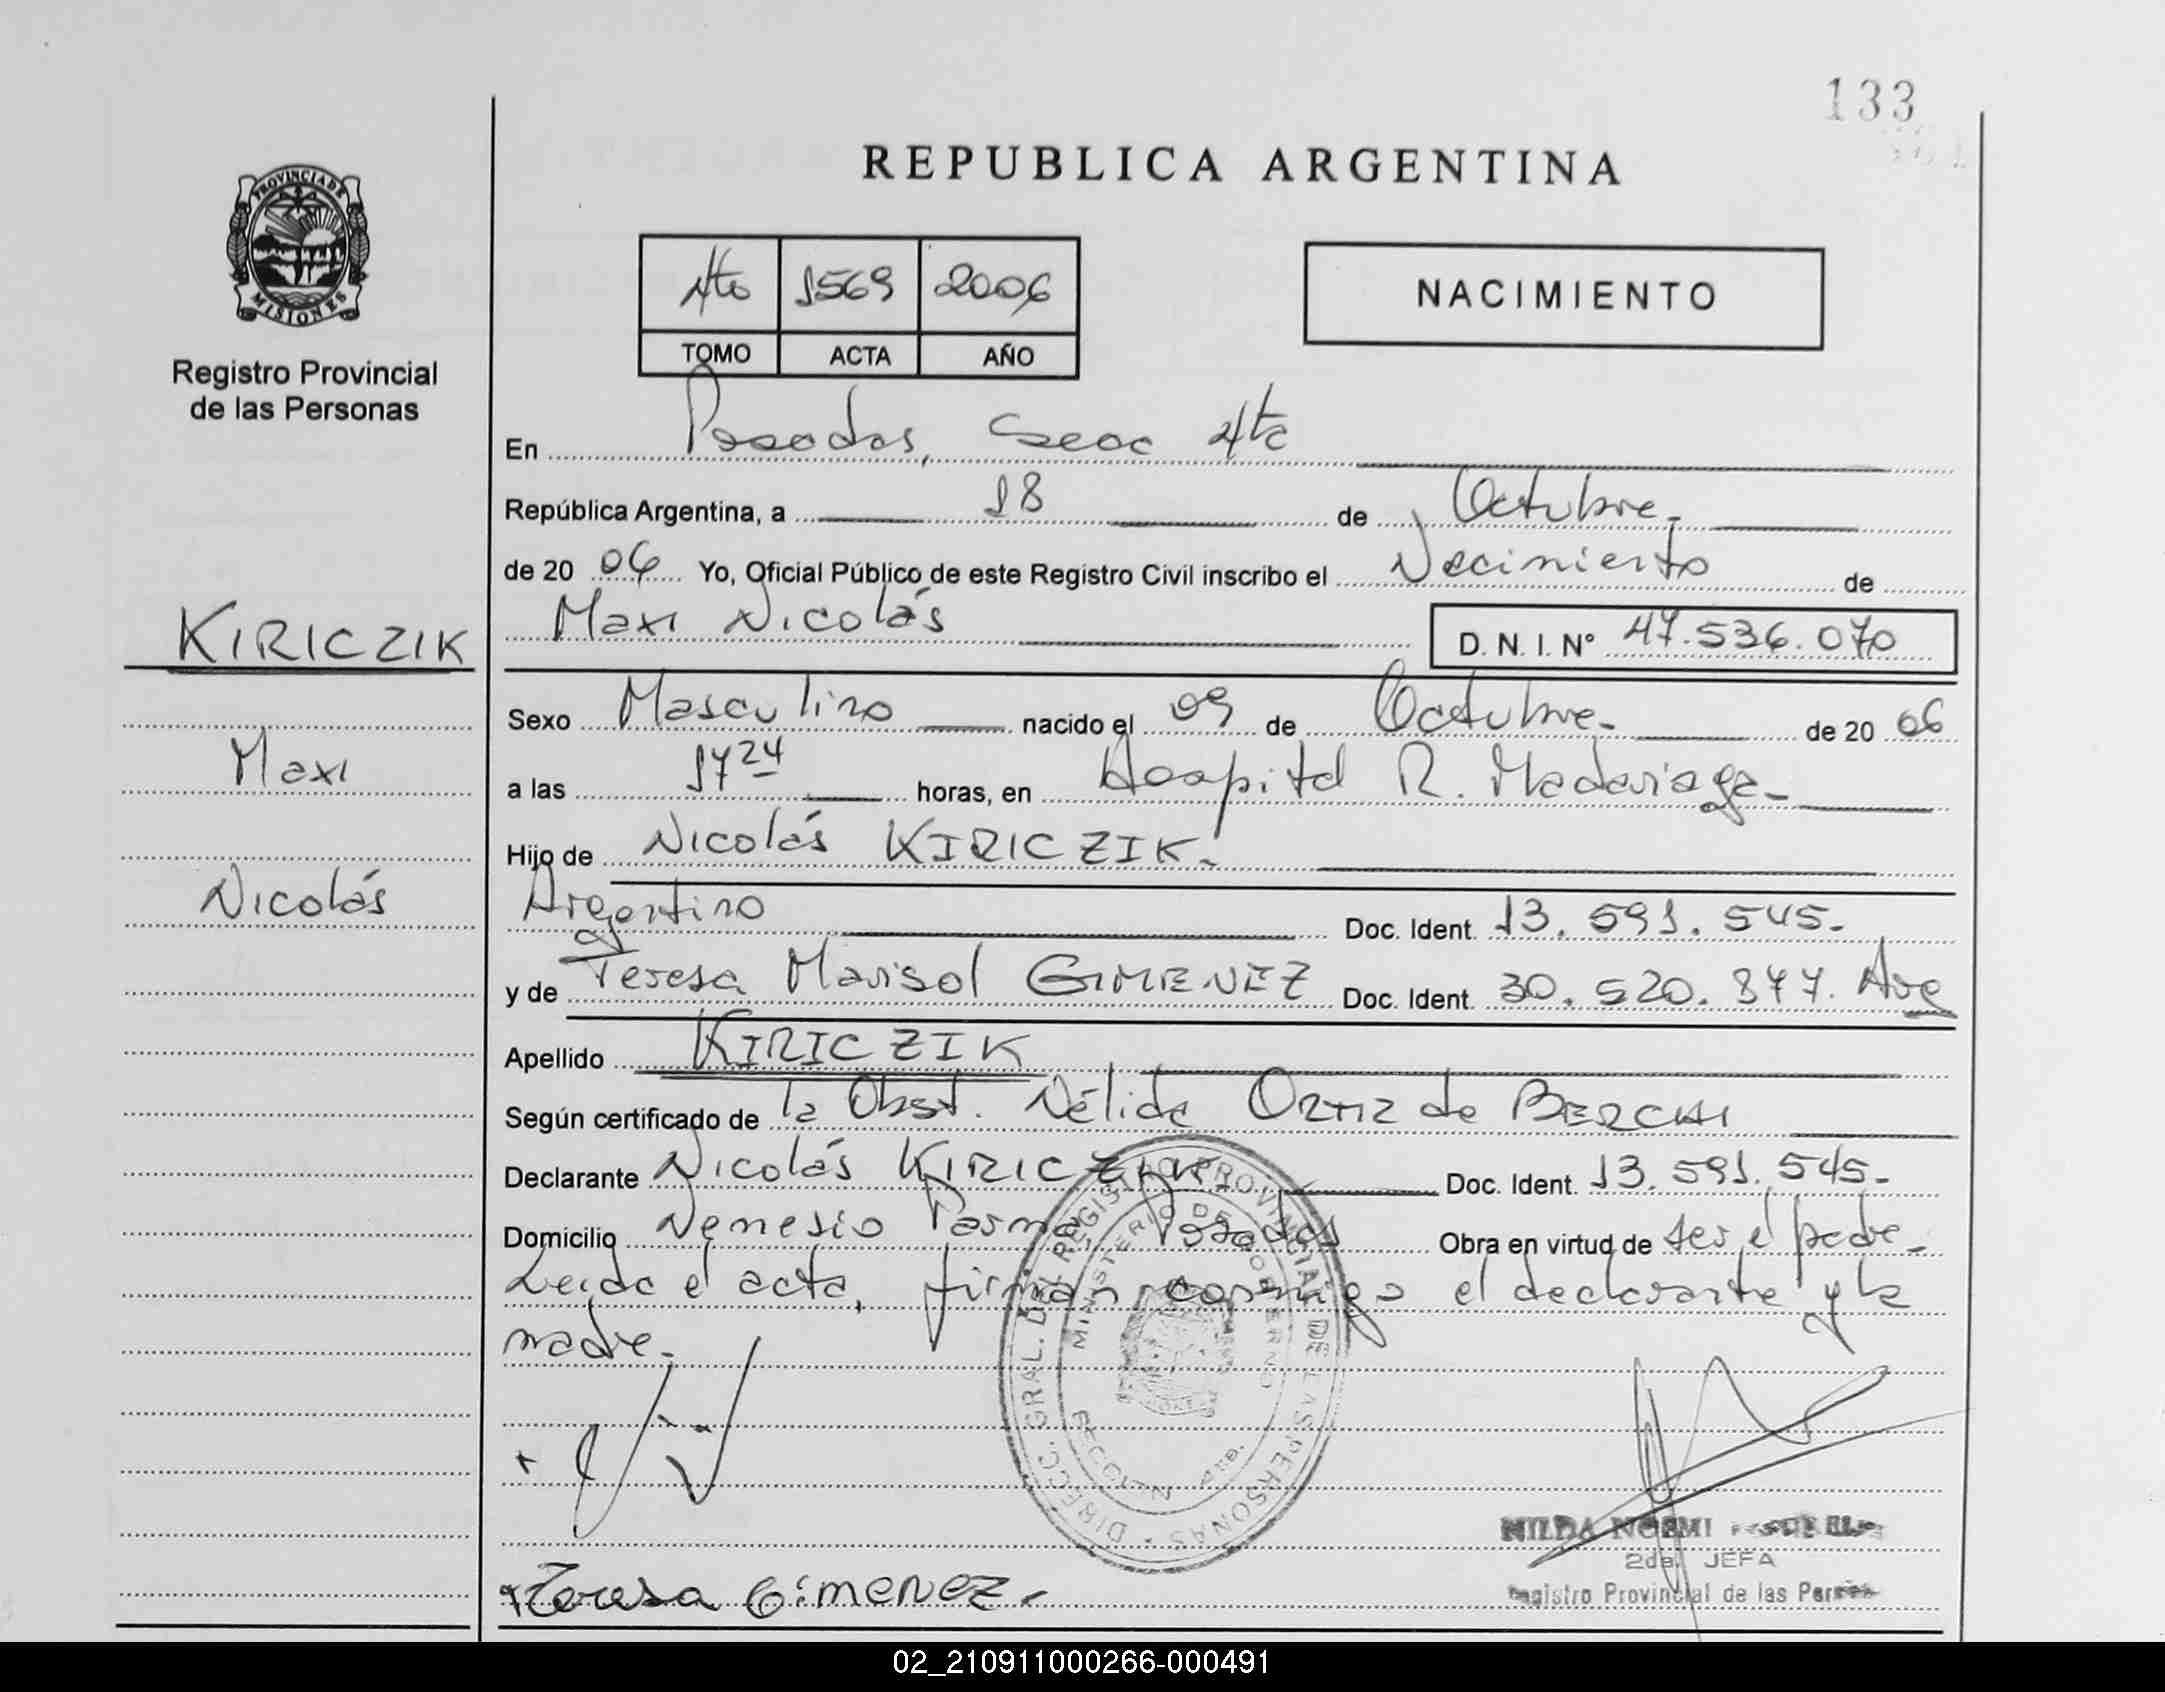 133
REPUBLICA ARGENTINA
PROVINCIA DE
MISIONES
Registro Provincial
de las Personas
4to 1569 2006
TOMO ACTA AÑO
NACIMIENTO
En Posadas, Secc 4ta
República Argentina, a 18 de Octubre.
de 20 06 Yo, Oficial Público de este Registro Civil inscribo el Nacimiento de
KIRICZIK
Maxi Nicolás D. N. I. Nº 47.536.070
Sexo Masculino nacido el 09 de Octubre. de 20 06
Maxi
a las 17 24 horas, en Hospital R. Madariaga
Hijo de Nicolás KIRICZIK.
Nicolás
Argentino Doc. Ident. 13.591.545.
y de Teresa Marisol GIMENEZ Doc. Ident. 30.520.877. Arg
Apellido KIRICZIK
Según certificado de la Obst. Nélida ORTIZ de BERCHI
Declarante Nicolás KIRICZIK. Doc. Ident. 13.591.545.
Domicilio Nemesio Parma, Posadas Obra en virtud de ser el padre.
Leída el acta, firman conmigo el declarante y la
madre.
DIRECC. GRAL. DEL REGISTRO PROVINCIAL DE LAS PERSONAS
MINISTERIO DE GOBIERNO
HILDA NOEMI
2da. JEFA
Registro Provincial de las Personas
+Teresa Gimenez.
02_210911000266-000491